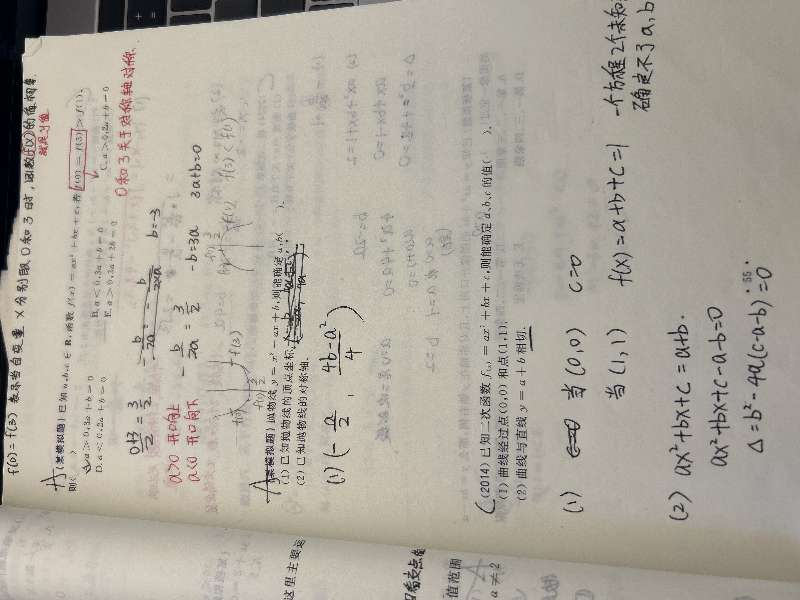 f(0)=f(3) 表示当自变量 x 分别取 0 和 3 时, 函数 f(x) 的值相等
就是 y 值
A (某模拟题) 已知 a,b,c ∈ R,函数 f(x)=ax²+bx+c,若 f(0)=f(3)>f(1),
则( )
A.a>0,3a+b=0 B.a<0,3a+b=0 C.a>0,2a+b=0
D.a<0,2a+b=0 E.a>0,3a+2b=0
0和3关于对称轴对称.
(0+3)/2 = 3/2 -b/2a b=-3
a>0 开口向上 -b/2a = 3/2 -b=3a 3a+b=0
a<0 开口向下
f(3)
A (某模拟题) 抛物线 y=x²-ax+b,则能确定 a,b( ).
(1) 已知抛物线的顶点坐标
(2) 已知抛物线的对称轴.
(1) (-a/2, (4b-a²)/4)
C (2014) 已知二次函数 f(x)=ax²+bx+c,则能确定 a,b,c 的值( ).
(1) 曲线经过点(0,0)和点(1,1).
(2) 曲线与直线 y=a+b 相切.
(1) 当 (0,0) c=0
当 (1,1) f(x)=a+b+c=1 一个方程2个未知
确定不了 a,b
(2) ax²+bx+c=a+b.
ax²+bx+c-a-b=0
Δ=b²-4a(c-a-b)=0
·55·
这里主要运
值范围
a≠2